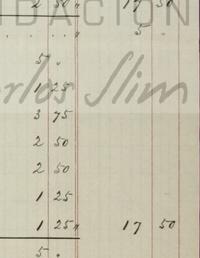 2 50 " 17 50
FUNDACIÓN
. . . . . . " 5 .
5 "
Carlos Slim
1 25
3 75
2 50
2 50
1 25
1 25 " 17 50
5 .